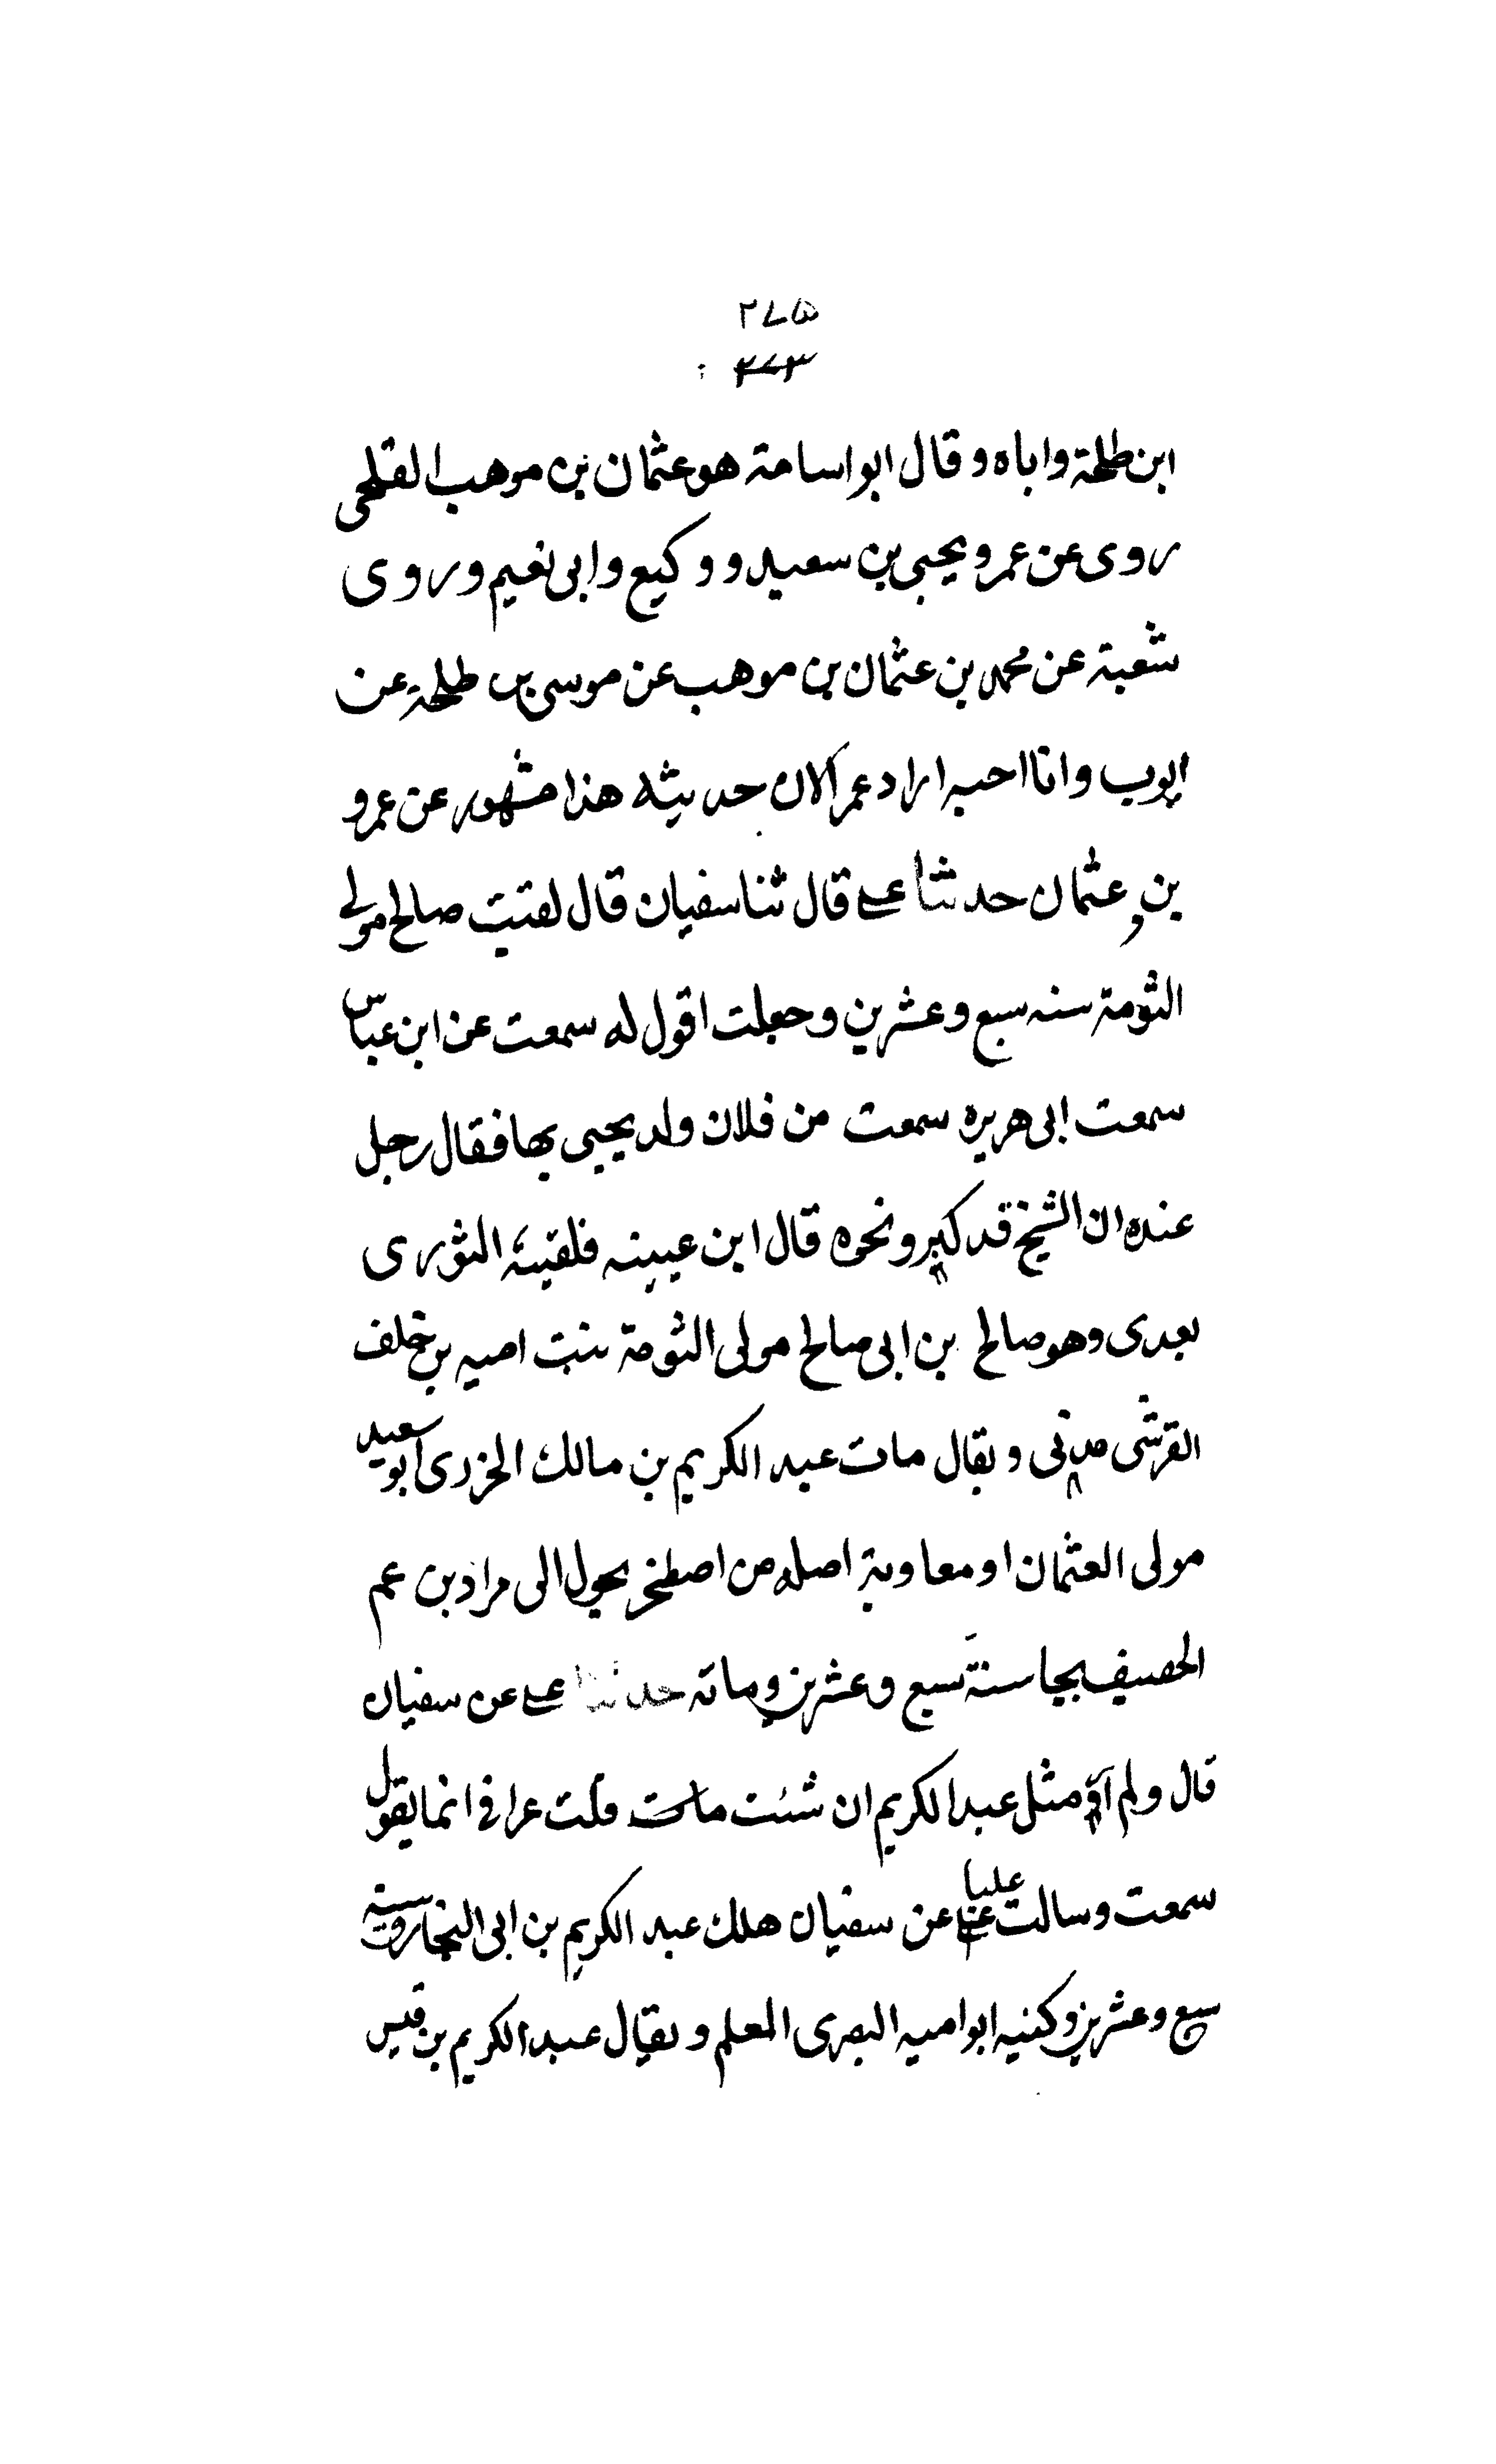 ٢٧٥
٢٧٣
ابن طلحة واباه وقال ابو اسامة هو عثمان بن موهب القلحى
روى عن عمرو يحيى بن سعيد و وكيع وابى نعيم وروى
شعبة عن محمد بن عثمان بن موهب عن موسى بن طلحة عن
ايوب وانا احسبه اراد عمر الان حديثه هذا مشهور عن عمرو
بن عثمان حدثنا على قال ثنا سفيان قال لقيت صالح مولى
الثومة سنه سبع وعشرين وجعلت اقول له سمعت عن ابن عباس
سمعت ابى هريره سمعت من فلان ولد يحيى بها فقال رجل
عنده ان الشيخ قد كبر ونحوه قال ابن عيينه فلقيته الثورى
بعدى وهو صالح بن ابى صالح مولى الثومة بنت اميه بن خلف
القرشى مدنى ويقال مات عبد الكريم بن مالك الجزرى ابو سعيد
مولى العثمان او معاوية اصله من اصطخر يحول الى مراد بن عم
الخصيف بجا سنة سبع وعشرين وماته حدثنا على عن سفيان
قال ولم ار مثل عبد الكريم ان شئت مات قلت عراقى انما يقول
سمعت وسالت عليا عن سفيان هلك عبد الكريم بن ابى النجار وسنه
سبع وعشرين وكنيه ابو اميه البصرى المعلم ويقال عبد الكريم بن قيس